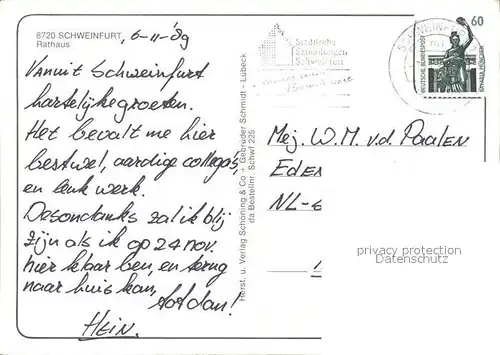 8720 SCHWEINFURT
Rathaus
6-11-'89
Vanuit Schweinfurt
hartelijke groeten.
Het bevalt me hier
bestwel, aardige collega's,
en leuk werk.
Desondanks zal ik blij
zijn als ik op 24 nov.
hier klaar ben, en terug
naar huis kan,
tot dan!
HEIN.
Herst. u. Verlag Schöning & Co + Gebrüder Schmidt - Lübeck
da Bestellnr. Schwf 225
Städtische
Sammlungen
Schweinfurt
immer einen
Besuch wert
SCHWEINFURT
60
DEUTSCHE BUNDESPOST
BAVARIA MÜNCHEN
Mej. W.M. v.d. Paalen
EDE
NL-6
privacy protection
Datenschutz